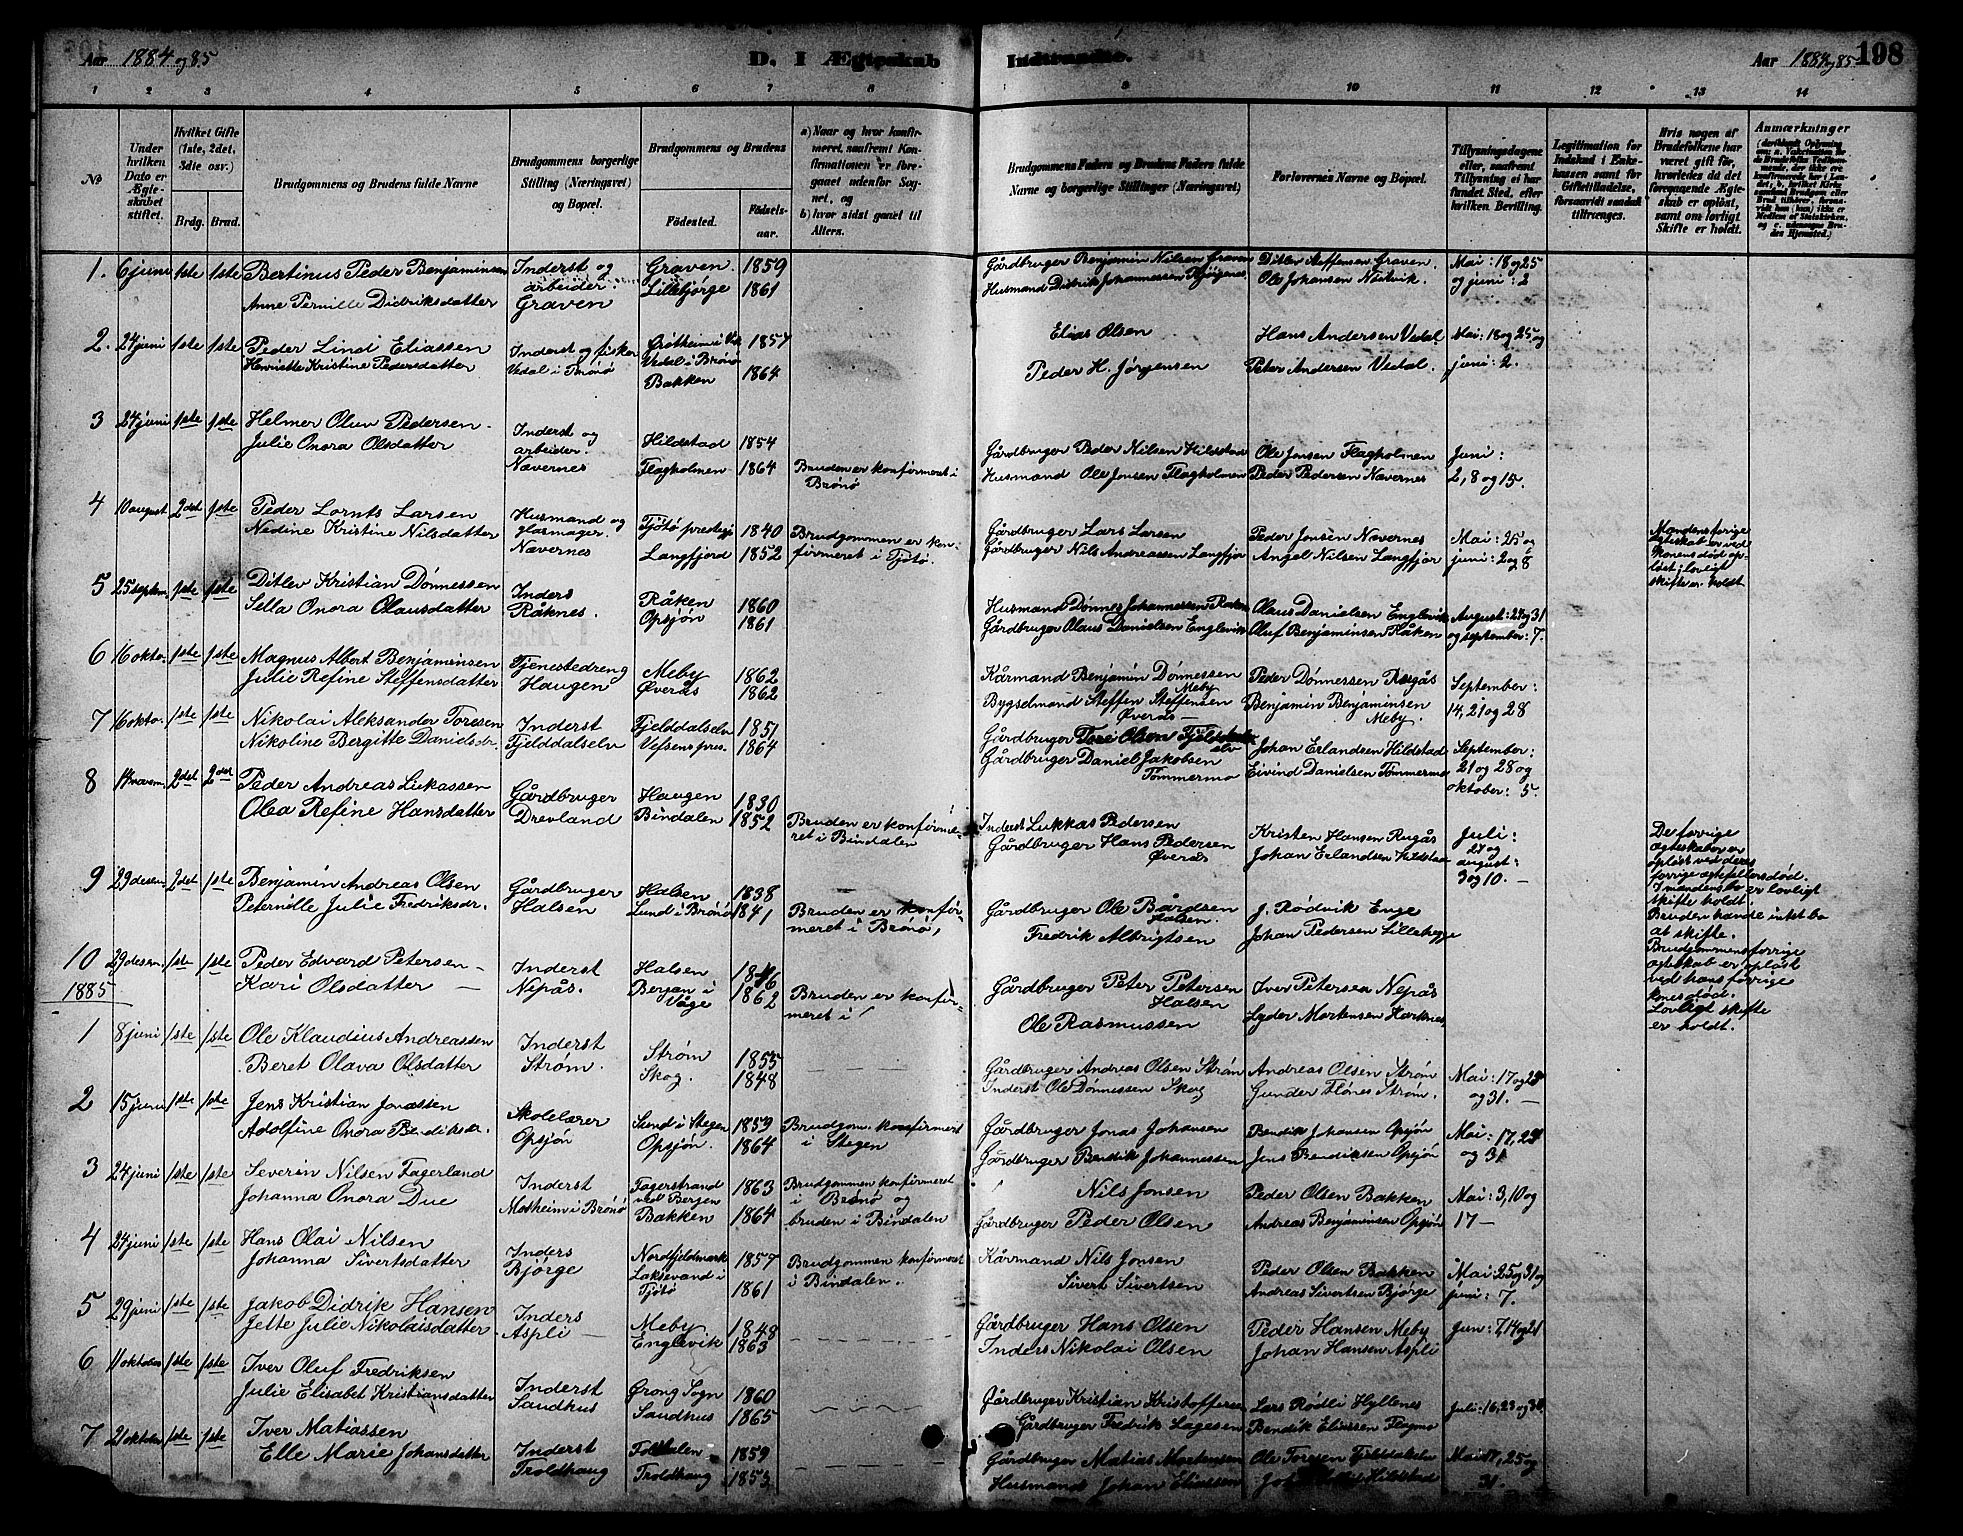 Aar 1884 og 85
D. I Ægteskab Indtraadte.
Aar 1884 og 85
198
1 2 3 4 5 6 7 8 9 10 11 12 13 14
No
Under hvilken Dato er Ægteskabet stiftet.
Hvilket Gifte (1ste, 2det, 3die osv.)
Brdg. Brud.
Brudgommens og Brudens fulde Navne
Brudgommens borgerlige Stilling (Næringsvei) og Bopæl.
Brudgommens og Brudens
Fødested.
Fødselsaar.
a) Naar og hvor konfirmeret, saafremt Konfirmationen er foregaaet udenfor Sognet, og
b) hvor sidst ganet til Alters.
Brudgommens Faders og Brudens Faders fulde Navne og borgerlige Stillinger (Næringsvei).
Forlovernes Navne og Bopæl.
Tillysningsdagene eller, saafremt Tillysning ei har fundet Sted, efter hvilken Bevilling.
Legitimation for Indskud i Enkekassen samt for Giftetilladelse, forsaavidt saadan tiltrænges.
Hvis nogen af Brudefolkene har været gift før, hvorledes da det foregaaende Ægteskab er opløst, samt om lovligt Skifte er holdt.
Anmærkninger
1. 6 juni 1ste 1ste Bertinus Peder Benjaminsen Inderst og arbeider. Graven Graven. 1859 Gårdbruger Benjamin Nilsen Graven Ditlev Steffensen Graven. Mai: 18 og 25
Anne Pernille Didriksdatter Lillebjørge 1861 Husmand Didrik Johannessen Ole Johansen og juni: 2
2. 24 juni 1ste 1ste Peder Lind Eliassen Inderst og fisker Vedal i Brønø 1857 Elias Olsen Hans Andersen Vedal Mai: 18 og 25 og
Henriette Kristine Pedersdatter Vedal i Brønø Bakken 1864 Peder H. Jørgensen Peter Andersen Vedal. juni: 2.
3 24 juni 1ste 1ste Helmer Olun Pedersen Inderst og arbeider. Nævernes Hildstad 1854 Gårdbruger Peder Nilsen Hildstad Ole Jonsen Flagholmen Juni:
Julie Onora Olsdatter Flagholmen 1864 Bruden er konfirmeret i Brønø Husmand Ole Jonsen Flagholmen Peder Pedersen Nævernes 2, 8 og 15.
4 10 august 2det 1ste Peder Lornts Larsen Husmand og glasmager. Nævernes Tjøtø prestegj 1840 Brudgommen er konfirmeret i Tjøtø. Gårdbruger Lars Larsen Peder Jonsen Nævernes Mai: 25 og
Nedine Kristine Nilsdatter Langfjord 1852 Gårdbruger Nils Andreassen Langfjor Angel Nilsen Langfjor juni: 2 og 8
Mandens forrige egteskab er ved konens død opløst; lovligt skifte er holdt.
5 25 septem. 1ste 1ste Ditlev Kristian Dønnessen Inders Råknes. Råken 1860 Husmand Dønnes Johannessen Råken Olaus Danielsen Englevik August: 24 og 31
Sella Onora Olausdatter Opsjøn 1861 Gårdbruger Olaus Danielsen Englevik Oluf Benjaminsen Råken og september: 7.
6 16 okto. 1ste 1ste Magnus Albert Benjaminsen Tjenestedreng Haugen Meby 1862 Kårmand Benjamin Dønnessen Meby Peder Dønnessen Rugås September:
Julie Refine Steffensdatter Øverås 1862 Bygselmand Steffen Steffensen Øverås — Benjamin Benjaminsen Meby. 14, 21 og 28
7 16 okto. 1ste 1ste Nikolai Aleksander Toresen Inderst Fjelddalselv Fjelddalselv 1851 Gårdbruger Tore Olsen Johan Erlandsen Hildstad September:
Nikoline Bergitte Danielsdr. Vefsens pres. 1864 Gårdbruger Daniel Jakobsen Tømmermo Eivind Danielsen Tømmermo 21 og 28 og oktober: 5.
8 novem. 2det 2det Peder Andreas Lukassen Gårdbruger Drevland Haugen 1830 Inderst Lukkas Pedersen Kristen Hansen Rugås Juli:
Olea Refine Hansdatter Bindalen 1852 Bruden er konfirmeret i Bindalen Gårdbruger Hans Pedersen Øverås Johan Erlandsen Hildstad 27 og august: 3 og 10. —
De forrige egteskaber er opløst ved deres forrige egtefellers død. I mandens bo er lovligt skifte holdt. Bruden havde intet bo at skifte.
9 29 desem. 2det 1ste Benjamin Andreas Olsen Gårdbruger Halsen Halsen 1838 Gårdbruger Ole Bårdsen Halsen. J. Rødvik Enge
Peternille Julie Fredriksdr. Lund i Brønø 1841 Bruden er konfirmeret i Brønø, Fredrik Albrigtsen Johan Pedersen Lillehegge
Brudgommens forrige egteskab er opløst ved hans forrige kones død. Lovligt skifte er holdt.
10 29 desem. 1ste 1ste Peder Edvard Petersen — Inderst Nepås. Halsen Gårdbruger Peter Petersen Halsen Iver Petersen Nepås
Kari Olsdatter — Berjan i Våge 1862 Bruden er konfirmeret i Ole Rasmussen Lyder Mortensen
1885
1 8 juni 1ste 1ste Ole Klaudius Andreassen Inderst Strøm. Strøm 1855 Gårdbruger Andreas Olsen Strøm Andreas Olsen Strøm Mai: 17 og 25
Beret Olava Olsdatter Skog. 1848 Inderst Ole Dønnessen Skog Gunder Flønes Strøm. og 31. —
2 15 juni 1ste 1ste Jens Kristian Jonassen Skolelærer Opsjøn Sund i Stegen 1859 Brudgom. konfirmeret i Stegen Gårdbruger Jonas Johansen Bendik Johansen Opsjøn Mai: 17, 25
Adolfine Onora Bendiksdr. Opsjøn. 1864 Gårdbruger Bendik Johannessen Jens Bendiksen Opsjøn og 31
3 24 juni 1ste 1ste Severin Nilsen Fagerland Inderst Motheim i Brønø Fagerstrand ved Bergen 1863 Brudgommen konfirmeret i Brønø og bruden i Bindalen Nils Jonsen Peder Olsen Bakken Mai: 3, 10 og
Johanna Onora Due Bakken 1864 Gårdbruger Peder Olsen Andreas Benjaminsen Opsjøn 17 —
4 24 juni 1ste 1ste Hans Olai Nilsen Inders Bjørge Nordfjeldmark 1857 Brudgommen konfirmeret i Bindalen. Kårmand Nils Jonsen Peder Olsen Bakken Mai 25 og 31 og
Johanna Sivertsdatter Laksevand i Tjøtø 1861 Sivert Sivertsen Andreas Sivertsen Bjørge juni: 7.
5 29 juni 1ste 1ste Jakob Didrik Hansen Inders Aspli — Meby 1848 Gårdbruger Hans Olsen Peder Hansen Meby Jun: 7, 14 og 21
Jette Julie Nikolaisdatter Englevik 1863 Inders Nikolai Olsen Johan Hansen Aspli
6 11 oktober 1ste 1ste Iver Oluf Fredriksen Inderst Sandhus Grong Sogn 1860 Gårdbruger Kristian Kristoffersen Lars Rødli Hyllenes Juli: 16, 23 og 30
Julie Elisabet Kristiansdatter Sandhus 1865 Gårdbruger Fredrik Lagesen Bendik Eliassen Flagmo
7 21 oktober 1ste 1ste Iver Matiassen Inderst Troldhaug 1859 Gårdbruger Matias Mortensen Ole Toresen Fjelddalselv Mai 17, 25 og
Elle Marie Johansdatter Troldhaug 1853 Husmand Johan Eliassen Hildstad 31.